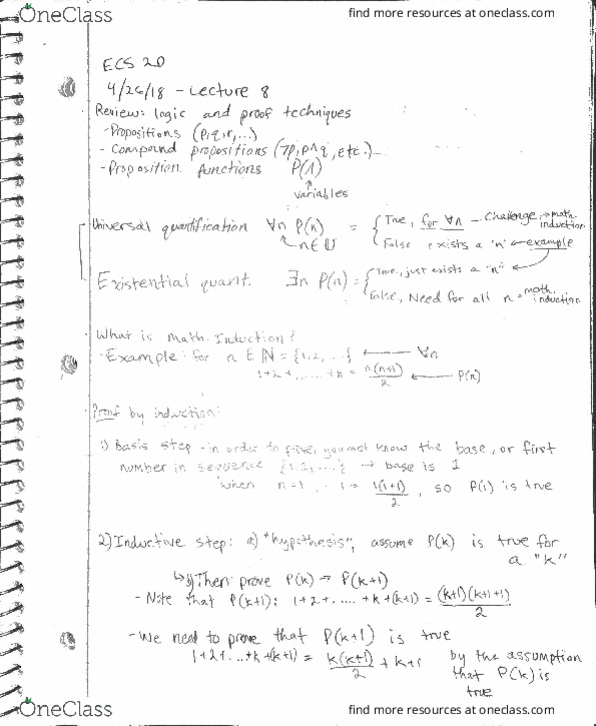 OneClass
find more resources at oneclass.com
ECS 20
4/26/18 - Lecture 8
Review: logic and proof techniques
- Propositions (p,q,r,...)
- Compound propositions (¬p, p∧q, etc.)
- Proposition functions P(n)
variables
Universal quantification ∀n P(n) = { True, for ∀n - Challenge → math. induction
n∈U False exists a "n" ← example
Existential quant. ∃n P(n) = { True, just exists a "n"
False, Need for all n = math. induction
What is math. Induction?
- Example: for n ∈ N = {1,2,...} ← ∀n
1+2+......+n = n(n+1)/2 ← P(n)
Proof by induction:
1) Basis step - in order to prove, you must know the base, or first
number in sequence {1,2,...} → base is 1
when n=1, 1 = 1(1+1)/2, so P(1) is true
2) Inductive step: a) "hypothesis", assume P(k) is true for
a "k"
↳ Then prove P(k) → P(k+1)
- Note that P(k+1): 1+2+.....+k+(k+1) = (k+1)(k+1+1)/2
- We need to prove that P(k+1) is true
1+2+...+k+(k+1) = k(k+1)/2 + k+1 by the assumption
that P(k) is
true
OneClass
find more resources at oneclass.com